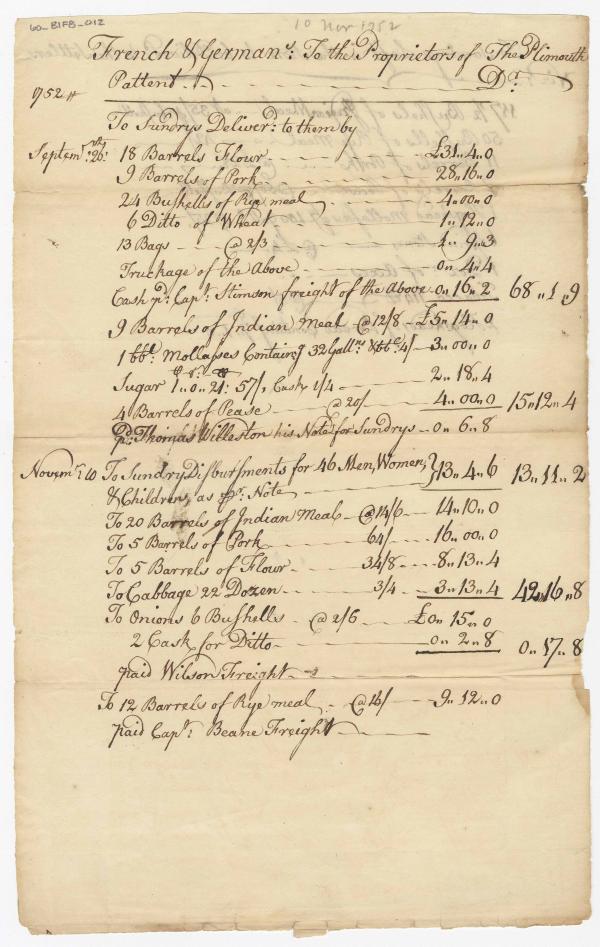 60_B1F8_012
10 Nov 1752
French & Germans: To the Proprietors of The Plimouth
Pattent Dr.
1752
To Sundrys Deliverd: to them by
Septemr: 26: 18 Barrels Flour £31..4..0
9 Barrels of Pork 28..16..0
24 Bushells of Rye meal 4..00..0
6 Ditto of Wheat 1..12..0
13 Bags @ 2/3 1..9..3
Truckage of the Above 0..4..4
Cash pd: Capt: Stimson freight of the Above 0..16..2 68..1..9
9 Barrels of Indian Meal @ 12/8 £5..14..0
1 bbl: Mollasses Containg 32 Galls: & bbl 4/ 3..00..0
Sugar 1..0..21: 57/, Cask 1/4 2..18..4
4 Barrels of Pease @ 20/ 4..00..0 15..12..4
pd: Thomas Willeston his Note for Sundrys 0..6..8
Novemr: 10 To Sundry Disbursments for 46 Men, Women, } 13..4..6 13..11..2
& Children, as pr: Note
To 20 Barrels of Indian Meal @ 14/6 14..10..0
To 5 Barrels of Pork 64/ 16..00..0
To 5 Barrels of Flour 34/8 8..13..4
To Cabbage 22 Dozen 3/4 3..13..4 42..16..8
To Onions 6 Bushells @ 2/6 £0..15..0
2 Cask for Ditto 0..2..8 0..17..8
paid Wilson Freight
To 12 Barrels of Rye meal @ 16/ 9..12..0
paid Capt: Beane Freight